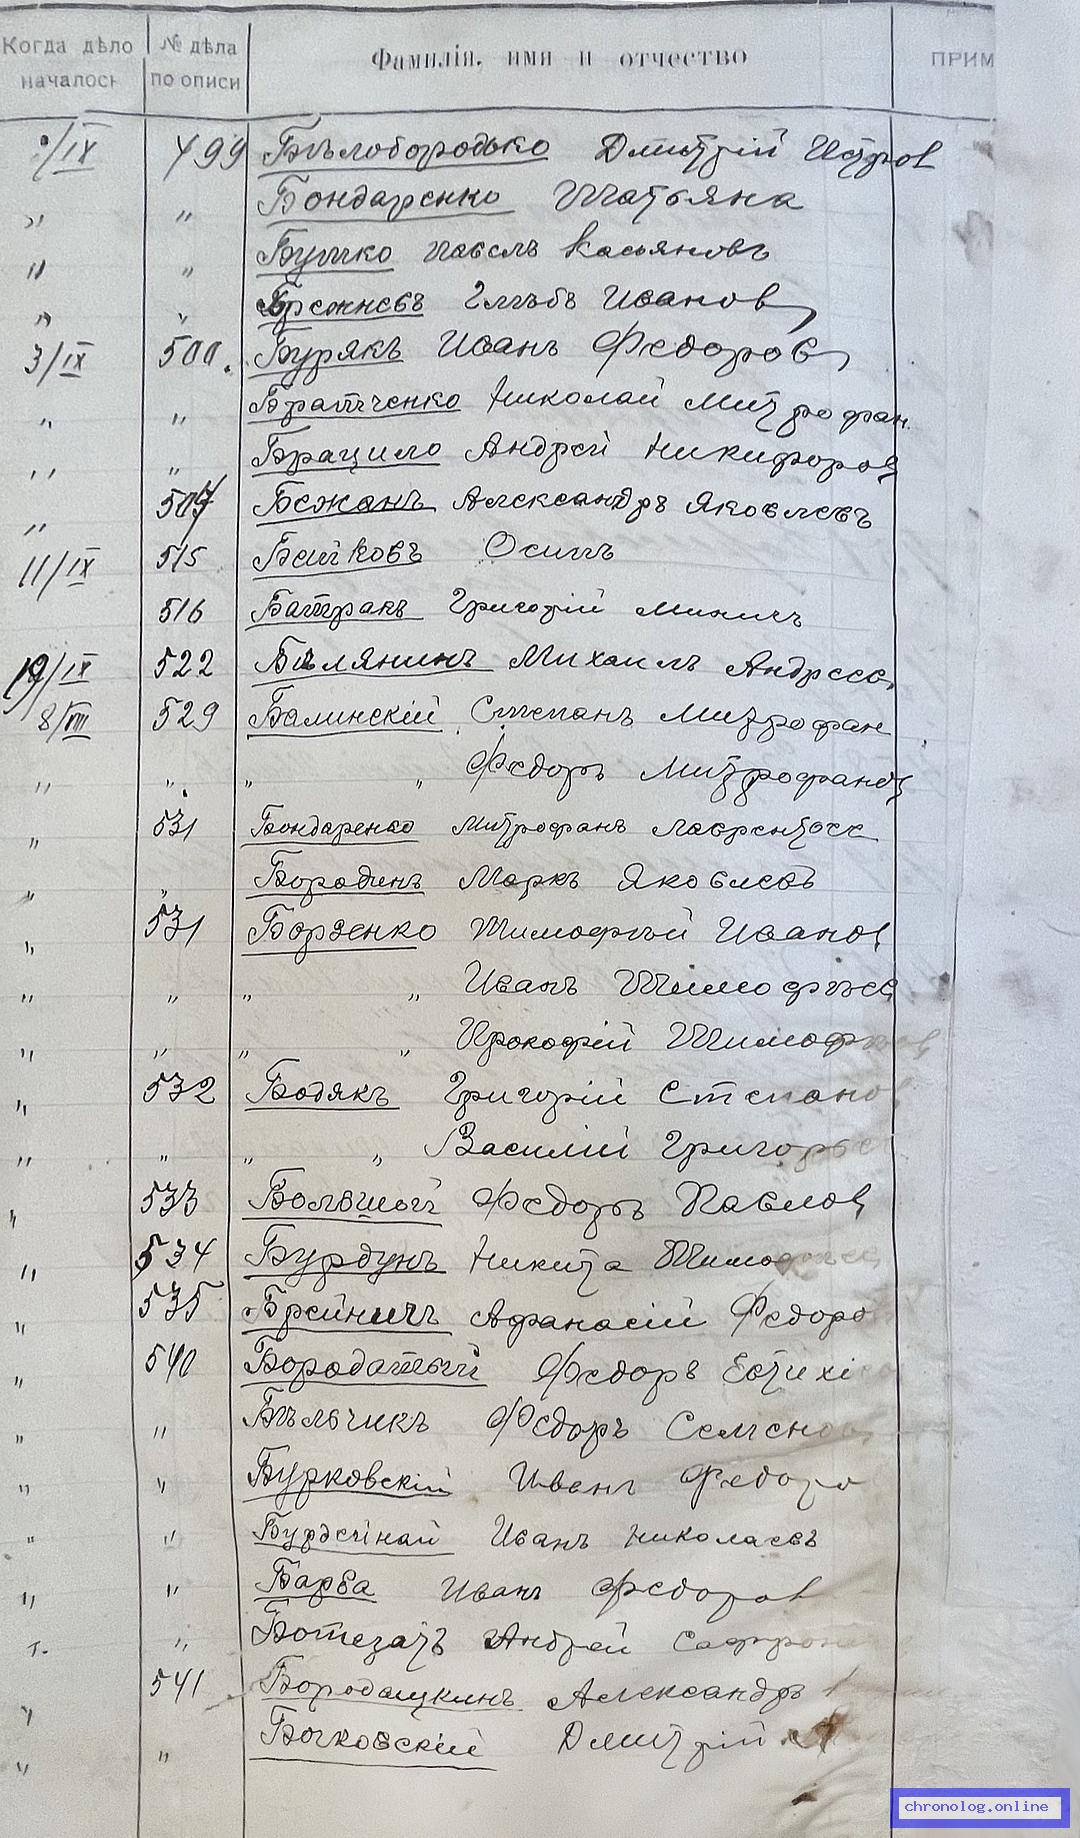 Когда дѣло началось № дѣла по описи Фамилія, имя и отчество ПРИМ
/IX 499 Бѣлобородько Дмитрій Петров
" " Бондаренко Татьяна
" " Бушко Павелъ Касьяновъ
" " Брежневъ Глѣбъ Иванов
3/IX 500. Буряк Иванъ Федоров
" " Братченко Николай Митрофан.
" " Брацило Андрей Никифоров
" 507 Бежанъ Александръ Яковлевъ
11/IX 515 Бойковъ Осипъ
516 Батракъ Григорій Минич
19/IX 522 Бѣлянинъ Михаилъ Андреев
8/VIII 529 Балинскій Степанъ Митрофан
" " " " Федоръ Митрофанов
" 531 Бондаренко Митрофанъ Лаврентьев
" " Бородинъ Маркъ Яковлевъ
" 531 Борзенко Тимофѣй Иванов
" " " " Иванъ Тимофѣев
" " " " Прокофій Тимоф
" 532 Бодякъ Григорій Степанов
" " " " Василій Григорьев
" 533 Большой Федоръ Павлов
" 534 Бурдунъ Никита Тимофѣев
" 535 Брейничъ Афанасій Федоро
" 540 Бородатый Федоръ Евтихі
" " Бѣльчикъ Федоръ Семенов
" " Бурковскій Иванъ Федоро
" " Иванъ Николаевъ
" " Барба Иванъ Федоров
" " Ботезатъ Андрей Сафрон
" 541 Бородашкинъ Александръ
" " Бочковскій Дмитрій
chronolog.online